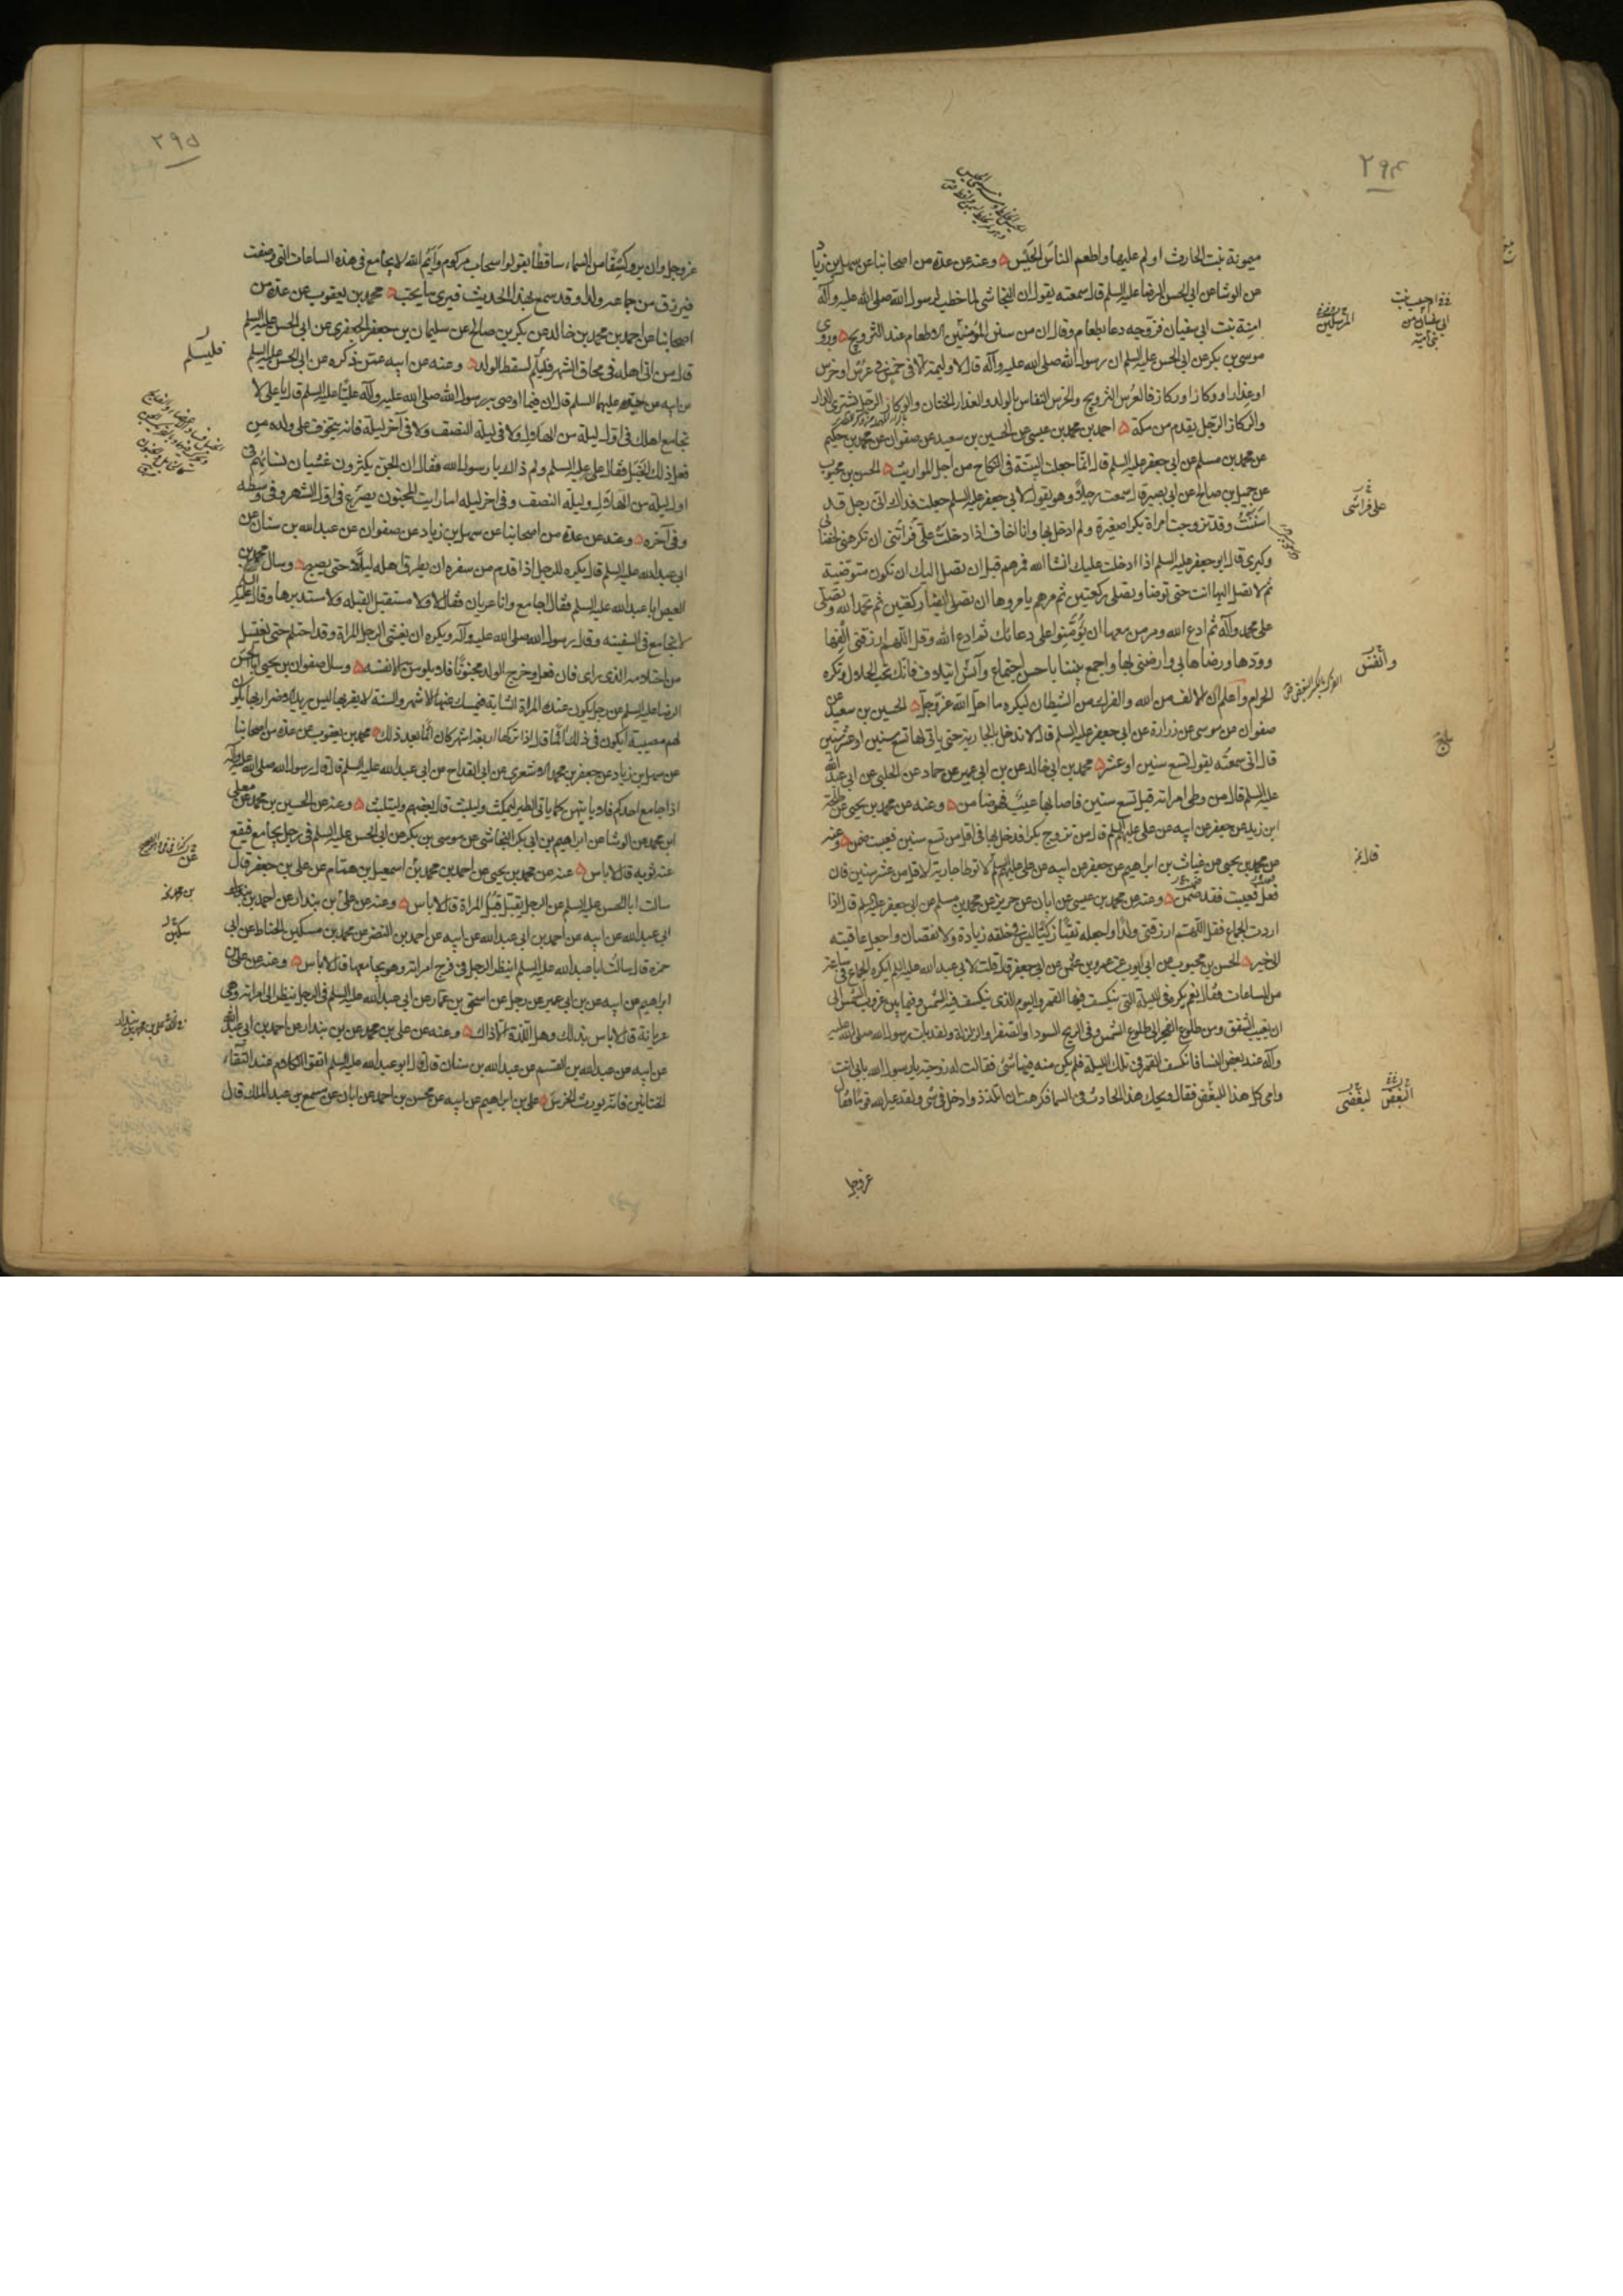 ٢٩٤
ميمونة بنت الحارث اولم عليها واطعم الناس الحيس وعنه عن عدة من اصحابنا عن سهل بن زياد
عن الوشا عن ابي الحسن الرضا عليه السلم قال سمعته يقول ان النجاشي لما خطب لرسول الله صلى الله عليه وآله
امنة بنت ابي سفيان فزوجه دعا بطعام وقال ان من سنن المؤمنين الاطعام عند التزويج وروى
موسى بن بكر عن ابي الحسن عليه السلم ان رسول الله صلى الله عليه وآله قال لا وليمة الا في خمس في عرس او خرس
او عذار او وكاز او ركاز فالعرس التزويج والخرس النفاس بالولد والعذار الختان والوكاز الرجل يشتري الدار
والركاز الرجل يقدم من مكة احمد بن محمد بن عيسى عن الحسين بن سعيد عن صفوان عن محمد بن حكيم
عن محمد بن مسلم عن ابي جعفر عليه السلم قال انما جعلت البينة في النكاح من اجل المواريث الحسن بن محبوب
عن جميل بن صالح عن ابي بصير قال سمعت رجلا وهو يقول لابي جعفر عليه السلم جعلت فداك اني رجل قد
اسننت وقد تزوجت امراة بكرا صغيرة ولم ادخل بها وانا اخاف اذا دخلت على فراشي ان تكرهني لخضابي
وكبري قال ابو جعفر عليه السلم اذا ادخلت عليك انشا الله فمرهم قبل ان تصل اليك ان تكون متوضية
ثم لا تصل اليها انت حتى توضا وتصلي ركعتين ثم مرهم يامروها ان تصلي ايضا ركعتين ثم تحمد الله وتصلي
على محمد وآله ثم ادع الله ومر من معها ان يؤمنوا على دعائك ثم ادع الله وقل اللهم ارزقني الفها
وودها ورضاها بي وارضني بها واجمع بيننا باحسن اجتماع وآنس ائتلاف فانك تحب الحلال وتكره
الحرام واعلم ان الالف من الله والفرك من الشيطان ليكره ما احل الله عز وجل الحسين بن سعيد عن
صفوان عن موسى عن زرارة عن ابي جعفر عليه السلم قال لا تدخل بالجارية حتى ياتي لها تسع سنين او عشر سنين
قال اني سمعته يقول تسع سنين او عشر محمد بن ابي خالد عن بن ابي عمير عن حماد عن الحلبي عن ابي عبد الله
عليه السلم قال من وطي امراته قبل تسع سنين فاصابها عيب فهو ضامن وعنه عن محمد بن يحيى عن طلحة
ابن زيد عن جعفر عن ابيه عن علي عليهم السلم قال من تزوج بكرا فدخل بها في اقل من تسع سنين فعيبت ضمن وعنه
عن محمد بن يحيى عن غياث بن ابراهيم عن جعفر عن ابيه عن علي عليهم السلم لا توطا جارية لاقل من عشر سنين فان
فعل فعيبت فقد ضمن وعنه عن محمد بن عيسى عن ابان عن حريز عن محمد بن مسلم عن ابي جعفر عليه السلم قال اذا
اردت الجماع فقل اللهم ارزقني ولدا واجعله تقيا زكيا ليس في خلقه زيادة ولا نقصان واجعل عاقبته
الى خير الحسن بن محبوب عن ابي ايوب عن عمرو بن عثمن عن ابي جعفر قال قلت لابي عبد الله عليه السلم ايكره الجماع في ساعة
من الساعات فقال نعم يكره في الليلة التي ينكسف فيها القمر واليوم الذي ينكسف فيه الشمس وفيما بين غروب الشمس الى
ان يغيب الشفق ومن طلوع الفجر الى طلوع الشمس وفي الريح السودا والصفرا والزلزلة ولقد بات رسول الله صلى الله عليه
وآله عند بعض النسا فانكسف القمر في تلك الليلة فلم يكن منه فيها شئ فقالت له زوجته يا رسول الله بابي انت
وامي كل هذا للبغض فقال ويحك هذا الحادث في السما فكرهت ان اتلذذ وادخل في شئ ولقد عير الله قوما فقال
عز وجل
المرسلين
على فراشي
وآنس
بلج
البغض لبغضي
٢٩٥
عز وجل وان يروا كسفا من السماء ساقطا يقولوا سحاب مركوم وايم الله لا يجامع في هذه الساعات التي وصفت
فيرزق من جماعه ولدا وقد سمع بهذا الحديث فيرى ما يحب محمد بن يعقوب عن عدة من
اصحابنا عن احمد بن محمد بن خالد عن بكر بن صالح عن سليمان بن جعفر الجعفري عن ابي الحسن عليه السلم
قال من اتى اهله في محاق الشهر فليسلم لسقط الولد وعنه عن ابيه عمن ذكره عن ابي الحسن عليه السلم
عن ابيه عن جده عليهما السلم قال ان فيما اوصى به رسول الله صلى الله عليه وآله عليا عليه السلم قال يا علي لا
تجامع اهلك في اول ليلة من الهلال ولا في ليلة النصف ولا في آخر ليلة فانه يتخوف على ولده من
فعل ذلك الخبل فقال علي عليه السلم ولم ذاك يا رسول الله فقال ان الجن يكثرون غشيان نسائهم في
اول ليلة من الهلال وليلة النصف وفي اخر ليلة اما رايت المجنون يصرع في اول الشهر وفي وسطه
وفي آخره وعنه عن عدة من اصحابنا عن سهل بن زياد عن صفوان عن عبد الله بن سنان عن
ابي عبد الله عليه السلم قال يكره للرجل اذا قدم من سفره ان يطرق اهله ليلا حتى يصبح وسال محمد بن
العيص ابا عبد الله عليه السلم فقال اجامع وانا عريان فقال لا ولا مستقبل القبلة ولا مستدبرها وقال عليه السلم
لا تجامع في السفينة وقال رسول الله صلى الله عليه وآله ويكره ان يغشى الرجل المراة وقد احتلم حتى يغتسل
من احتلامه الذي راى فان فعل وخرج الولد مجنونا فلا يلومن الا نفسه وسال صفوان بن يحيى ابا الحسن
الرضا عليه السلم عن رجل يكون عنده المراة الشابة فيمسك عنها الاشهر والسنة لا يقربها ليس يريد الاضرار بها يكون
لهم مصيبة ايكون في ذلك آثما قال اذا تركها اربعة اشهر كان آثما بعد ذلك محمد بن يعقوب عن عدة من اصحابنا
عن سهل بن زياد عن جعفر بن محمد الاشعري عن ابن القداح عن ابي عبد الله عليه السلم قال قال رسول الله صلى الله عليه وآله
اذا جامع احدكم فلا ياتيهن كما ياتي الطير ليمكث وليلبث قال بعضهم وليتلبث وعنه عن الحسين بن محمد عن معلى
ابن محمد عن الوشا عن ابراهيم بن ابي بكر النحاس عن موسى بن بكر عن ابي الحسن عليه السلم في رجل يجامع فيقع
عنه ثوبه قال لا باس عنه عن محمد بن يحيى عن احمد بن محمد بن اسمعيل بن همام عن علي بن جعفر قال
سالت ابا الحسن عليه السلم عن الرجل يقبل قبل المراة قال لا باس وعنه عن علي بن بندار عن احمد بن
ابي عبد الله عن ابيه عن احمد بن ابي عبد الله عن ابيه عن احمد بن النضر عن محمد بن مسكين الحناط عن ابي
حمزة قال سالت ابا عبد الله عليه السلم اينظر الرجل في فرج امراته وهو يجامعها قال لا باس وعنه عن علي بن
ابراهيم عن ابيه عن بن ابي عمير عن رجل عن اسحق بن عمار عن ابي عبد الله عليه السلم في الرجل ينظر الى امراته وهي
عريانة قال لا باس بذلك وهل اللذة الا ذاك وعنه عن علي بن محمد عن بن بندار عن احمد بن ابي عبد الله
عن ابيه عن عبد الله بن القسم عن عبد الله بن سنان قال قال ابو عبد الله عليه السلم اتقوا الكلام عند التقاء
الختانين فانه يورث الخرس علي بن ابراهيم عن ابيه عن محسن بن احمد عن ابان عن مسمع بن عبد الملك قال
فليسلم
سكين